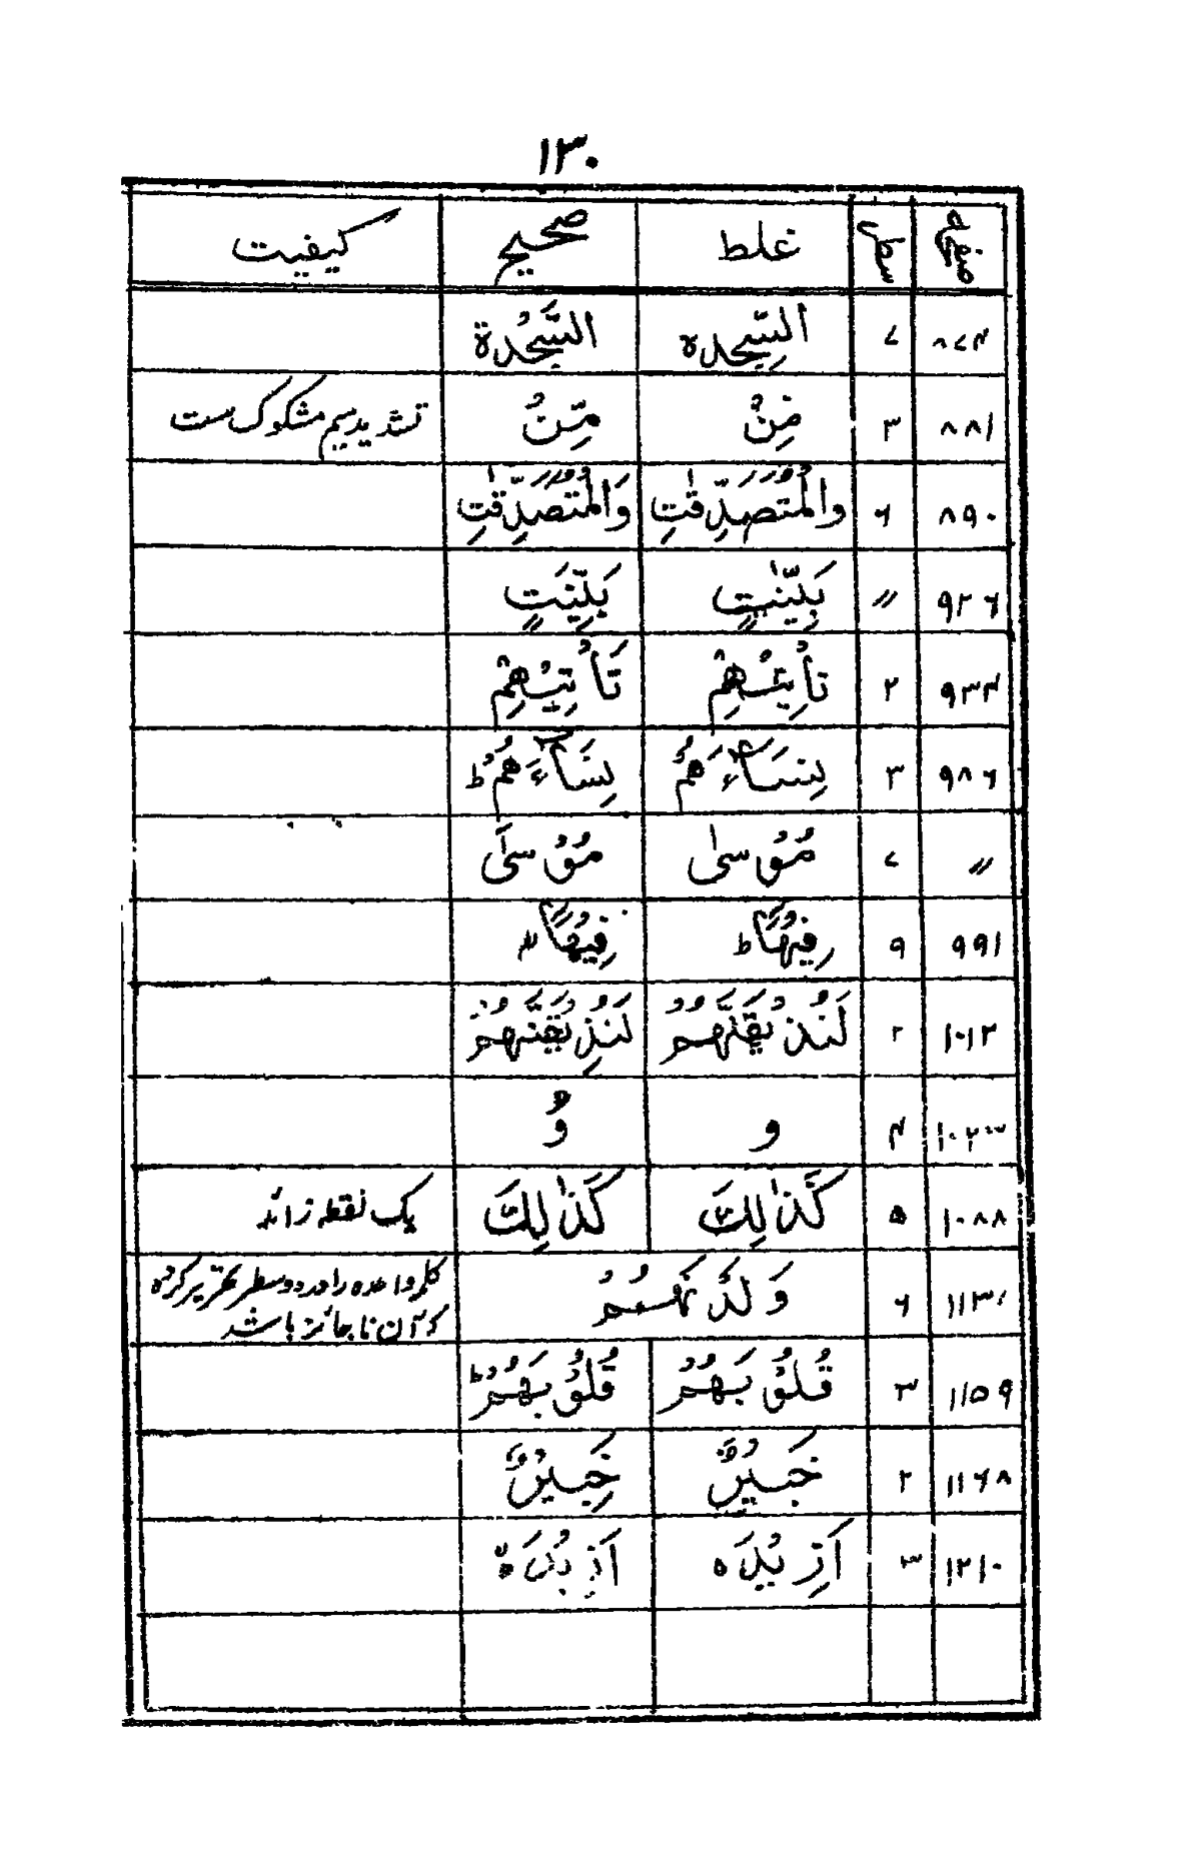 ۱۳۰
صفحہ سطر غلط صحیح کیفیت
۸۷۴ ۷ السِّجدہ السَّجْدَة
۸۸۱ ۳ مِنْ مِّنْ تشدید میم مشکوک ست
۸۹۰ ۶ والْمُتَصَدِّقٰتِ وَالْمُتَصَدِّقٰتِ
۹۲۶ // بَيِّنٰتٍ بَيِّنٰتٍ
۹۳۴ ۲ تأْتِيْهِمْ تَأْتِيْهِمْ
۹۸۶ ۳ نِسَآءَهُمْ نِسَآءَهُمْ ؕ
// ۷ مُوْسىٰ مُوْسَى
۹۹۱ ۹ فِيْهَا ؕ فِيْهَا
۱۰۱۲ ۲ لَنُذِيْقَنَّهُمْ لَنُذِيْقَنَّهُمْ
۴ و وُ
۱۰۸۸ ۵ كَذٰلِكَ كَذٰلِكَ یک نقطہ زائد
۶ وَلَدْنَهُمْ کلمہ واحدہ را در دو سطر تحریر کردہ
کہ آن نا جائز باشد
۱۱۵۹ ۳ قُلُوْبَهُمْ قُلُوْبَهُمْ ؕ
۱۱۶۸ ۲ خَبِيْرٌ خَبِيْرٌ
۱۲۱۰ ۳